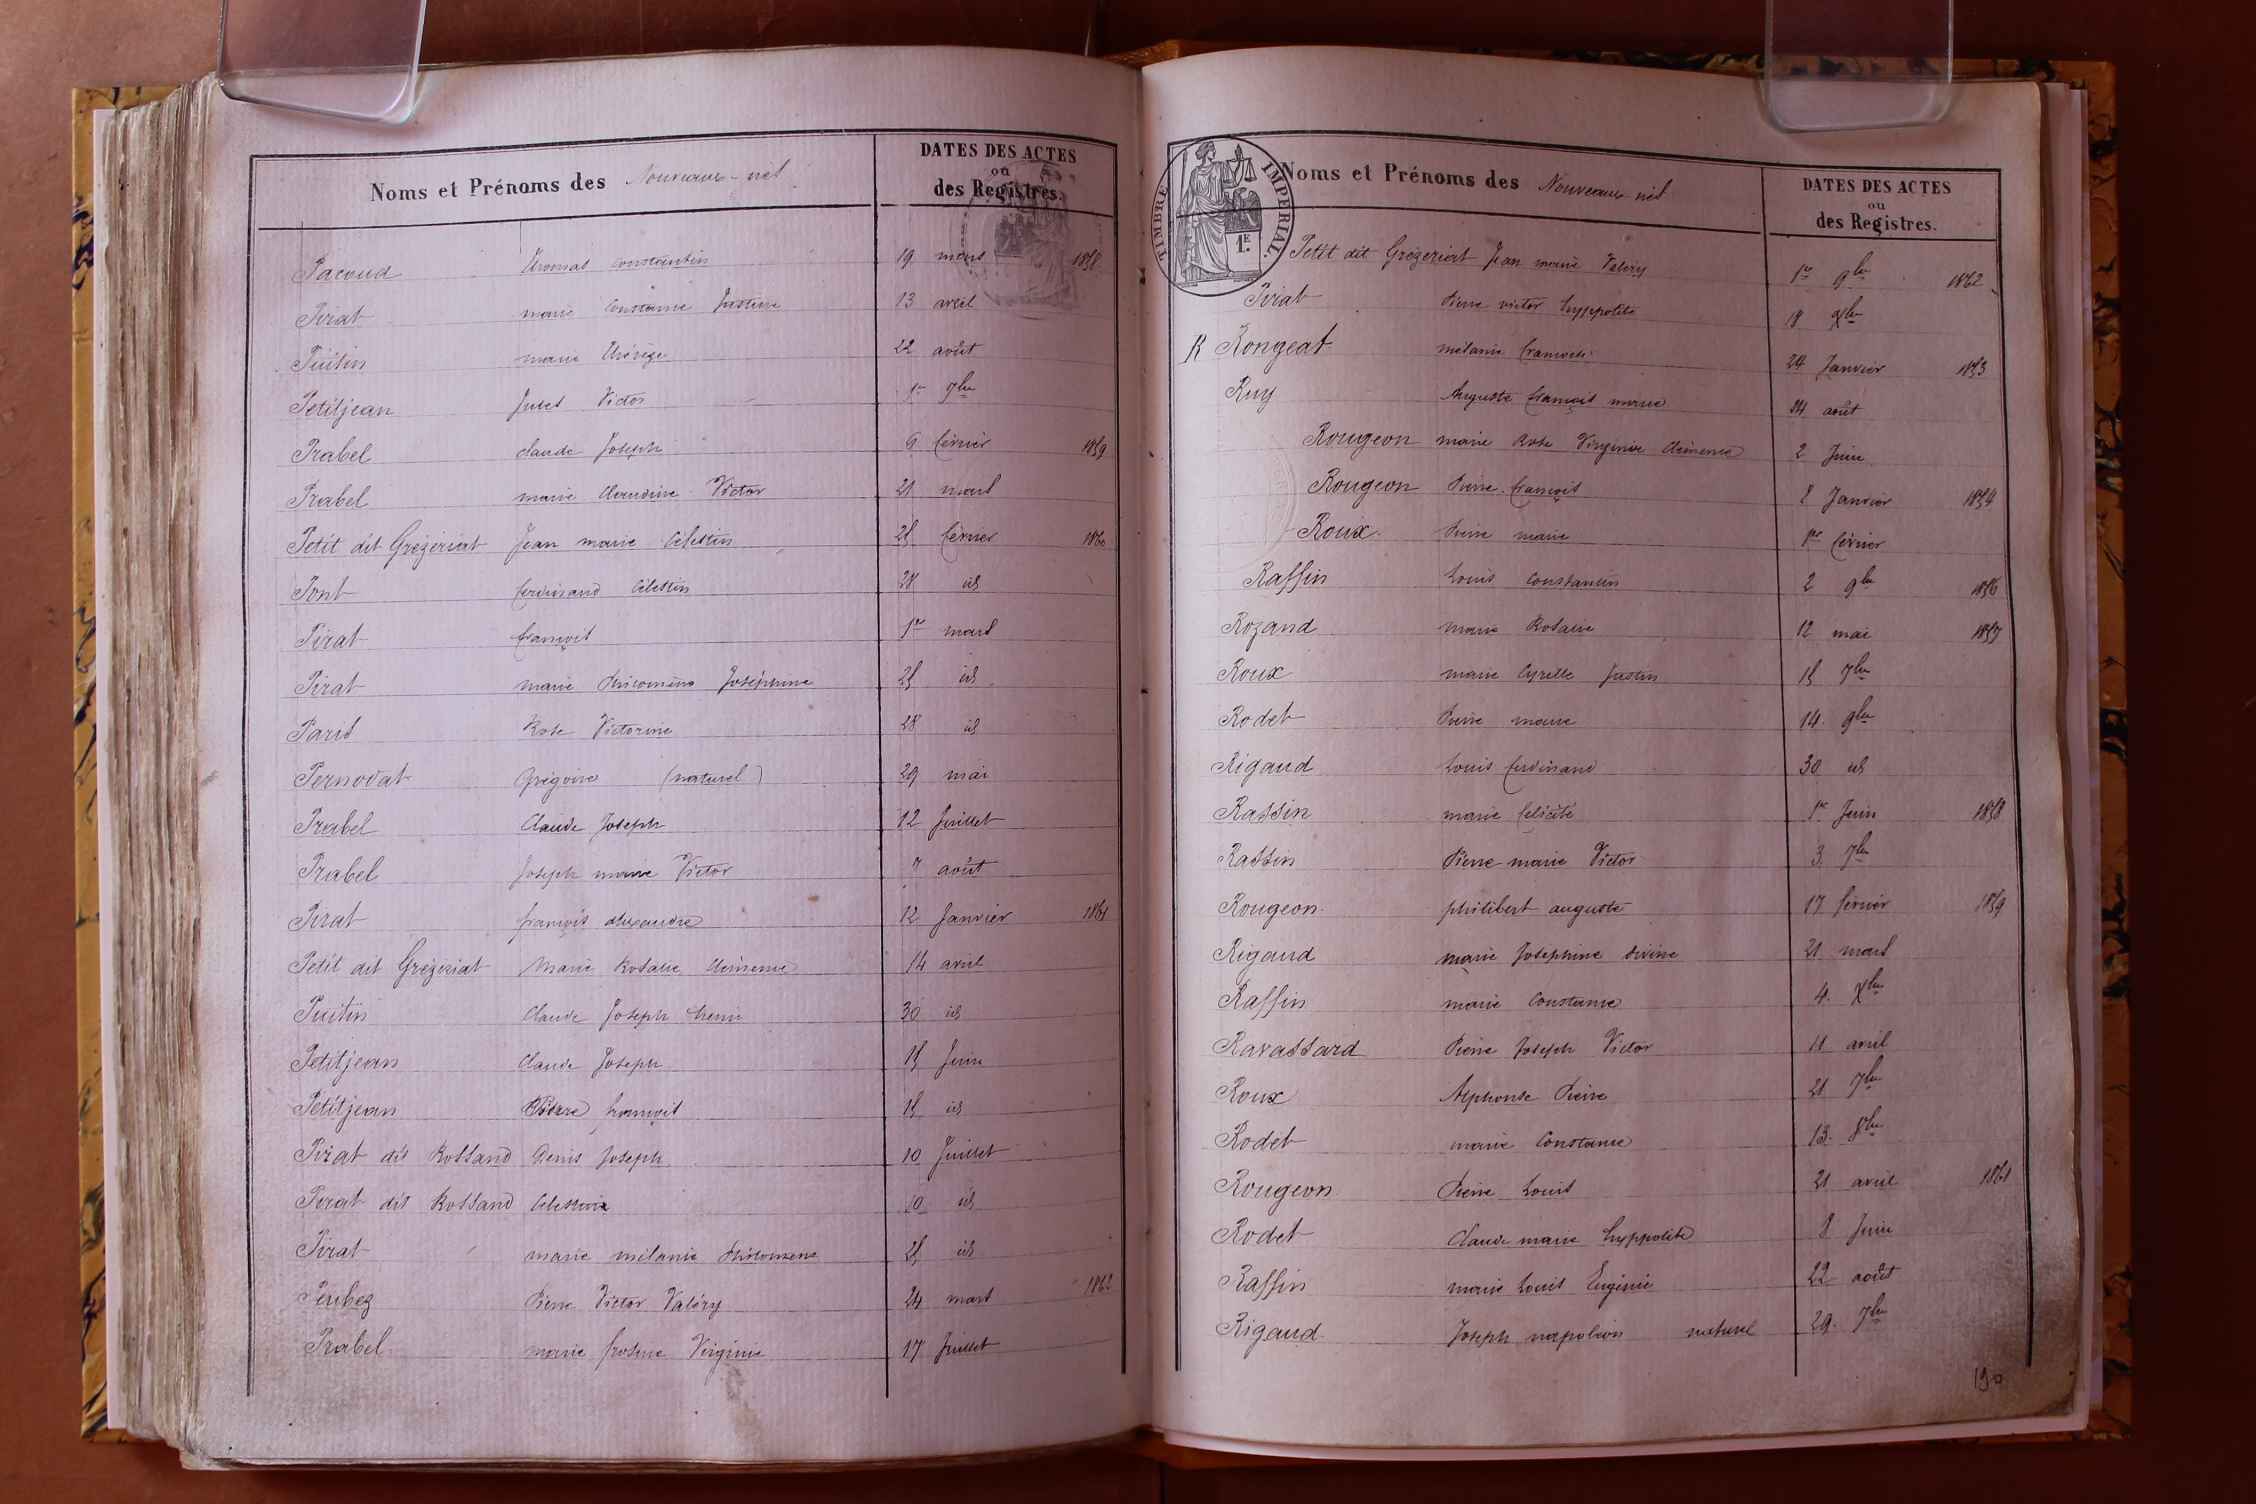 Noms et Prénoms des Nouveaux-nés
DATES DES ACTES
ou
des Registres.
Pacoud Thomas Constantin 19 mars 1858
Pirat marie Constance Justine 13 avril
Puitin marie Thérèse 22 août
Petitjean Jules Victor 1er 7bre
Prabel claude Joseph 9 février 1859
Prabel marie Claudine Victor 21 mars
Petit dit Grégériat Jean marie Célestin 25 février 1860
Pont ferdinand Célestin 28 id
Pirat françois 1er mars
Pirat marie Philomène Joséphine 25 id
Paris Rose Victorine 28 id
Pernodat Grégoire (naturel) 29 mai
Prabel Claude Joseph 12 Juillet
Prabel Joseph marie Victor 7 août
Pirat françois alexandre 12 Janvier 1861
Petit dit Grégériat Marie Rosalie Clémence 14 avril
Puitin Claude Joseph 30 id
Petitjean Claude Joseph 15 Juin
Petitjean Pierre françois 15 id
Pirat dit Rossand Denis Joseph 10 Juillet
Pirat dit Rossand Célestine 10 id
Pirat marie mélanie Philomène 25 id
Perubez Pierre Victor Valéry 24 mars 1862
Prabel marie Virginie 17 Juillet
Noms et Prénoms des Nouveaux-nés
DATES DES ACTES
ou
des Registres.
TIMBRE IMPÉRIAL.
1F.
Petit dit Grégériat Jean marie Valéry 1er 9bre 1862
Pirat Pierre victor hyppolite 18 Xbre
R Rongeat mélanie françoise 24 Janvier 1853
Ruy Auguste françois marie 14 août
Rougeon marie Rose Virginie Clémence 2 Juin
Rougeon Pierre françois 8 Janvier 1854
Roux Pierre marie 1er février
Raffin Louis Constantin 2 9bre 1856
Rozand marie Rosalie 12 mai 1857
Roux marie Cyrille Justin 15 7bre
Rodet Pierre marie 14 9bre
Rigaud Louis ferdinand 30 id
Rassin marie félicité 1er Juin 1858
Rassin Pierre marie Victor 3 7bre
Rougeon philibert auguste 17 février 1859
Rigaud marie Joséphine divine 21 mars
Raffin marie Constance 4 Xbre
Ravassard Pierre Joseph Victor 11 avril
Roux Alphonse Pierre 21 7bre
Rodet marie Constance 13 8bre
Rougeon Pierre Louis 21 avril 1861
Rodet Claude marie hyppolite 8 Juin
Raffin marie Louis Eugénie 22 août
Rigaud Joseph napoléon naturel 29 7bre
190